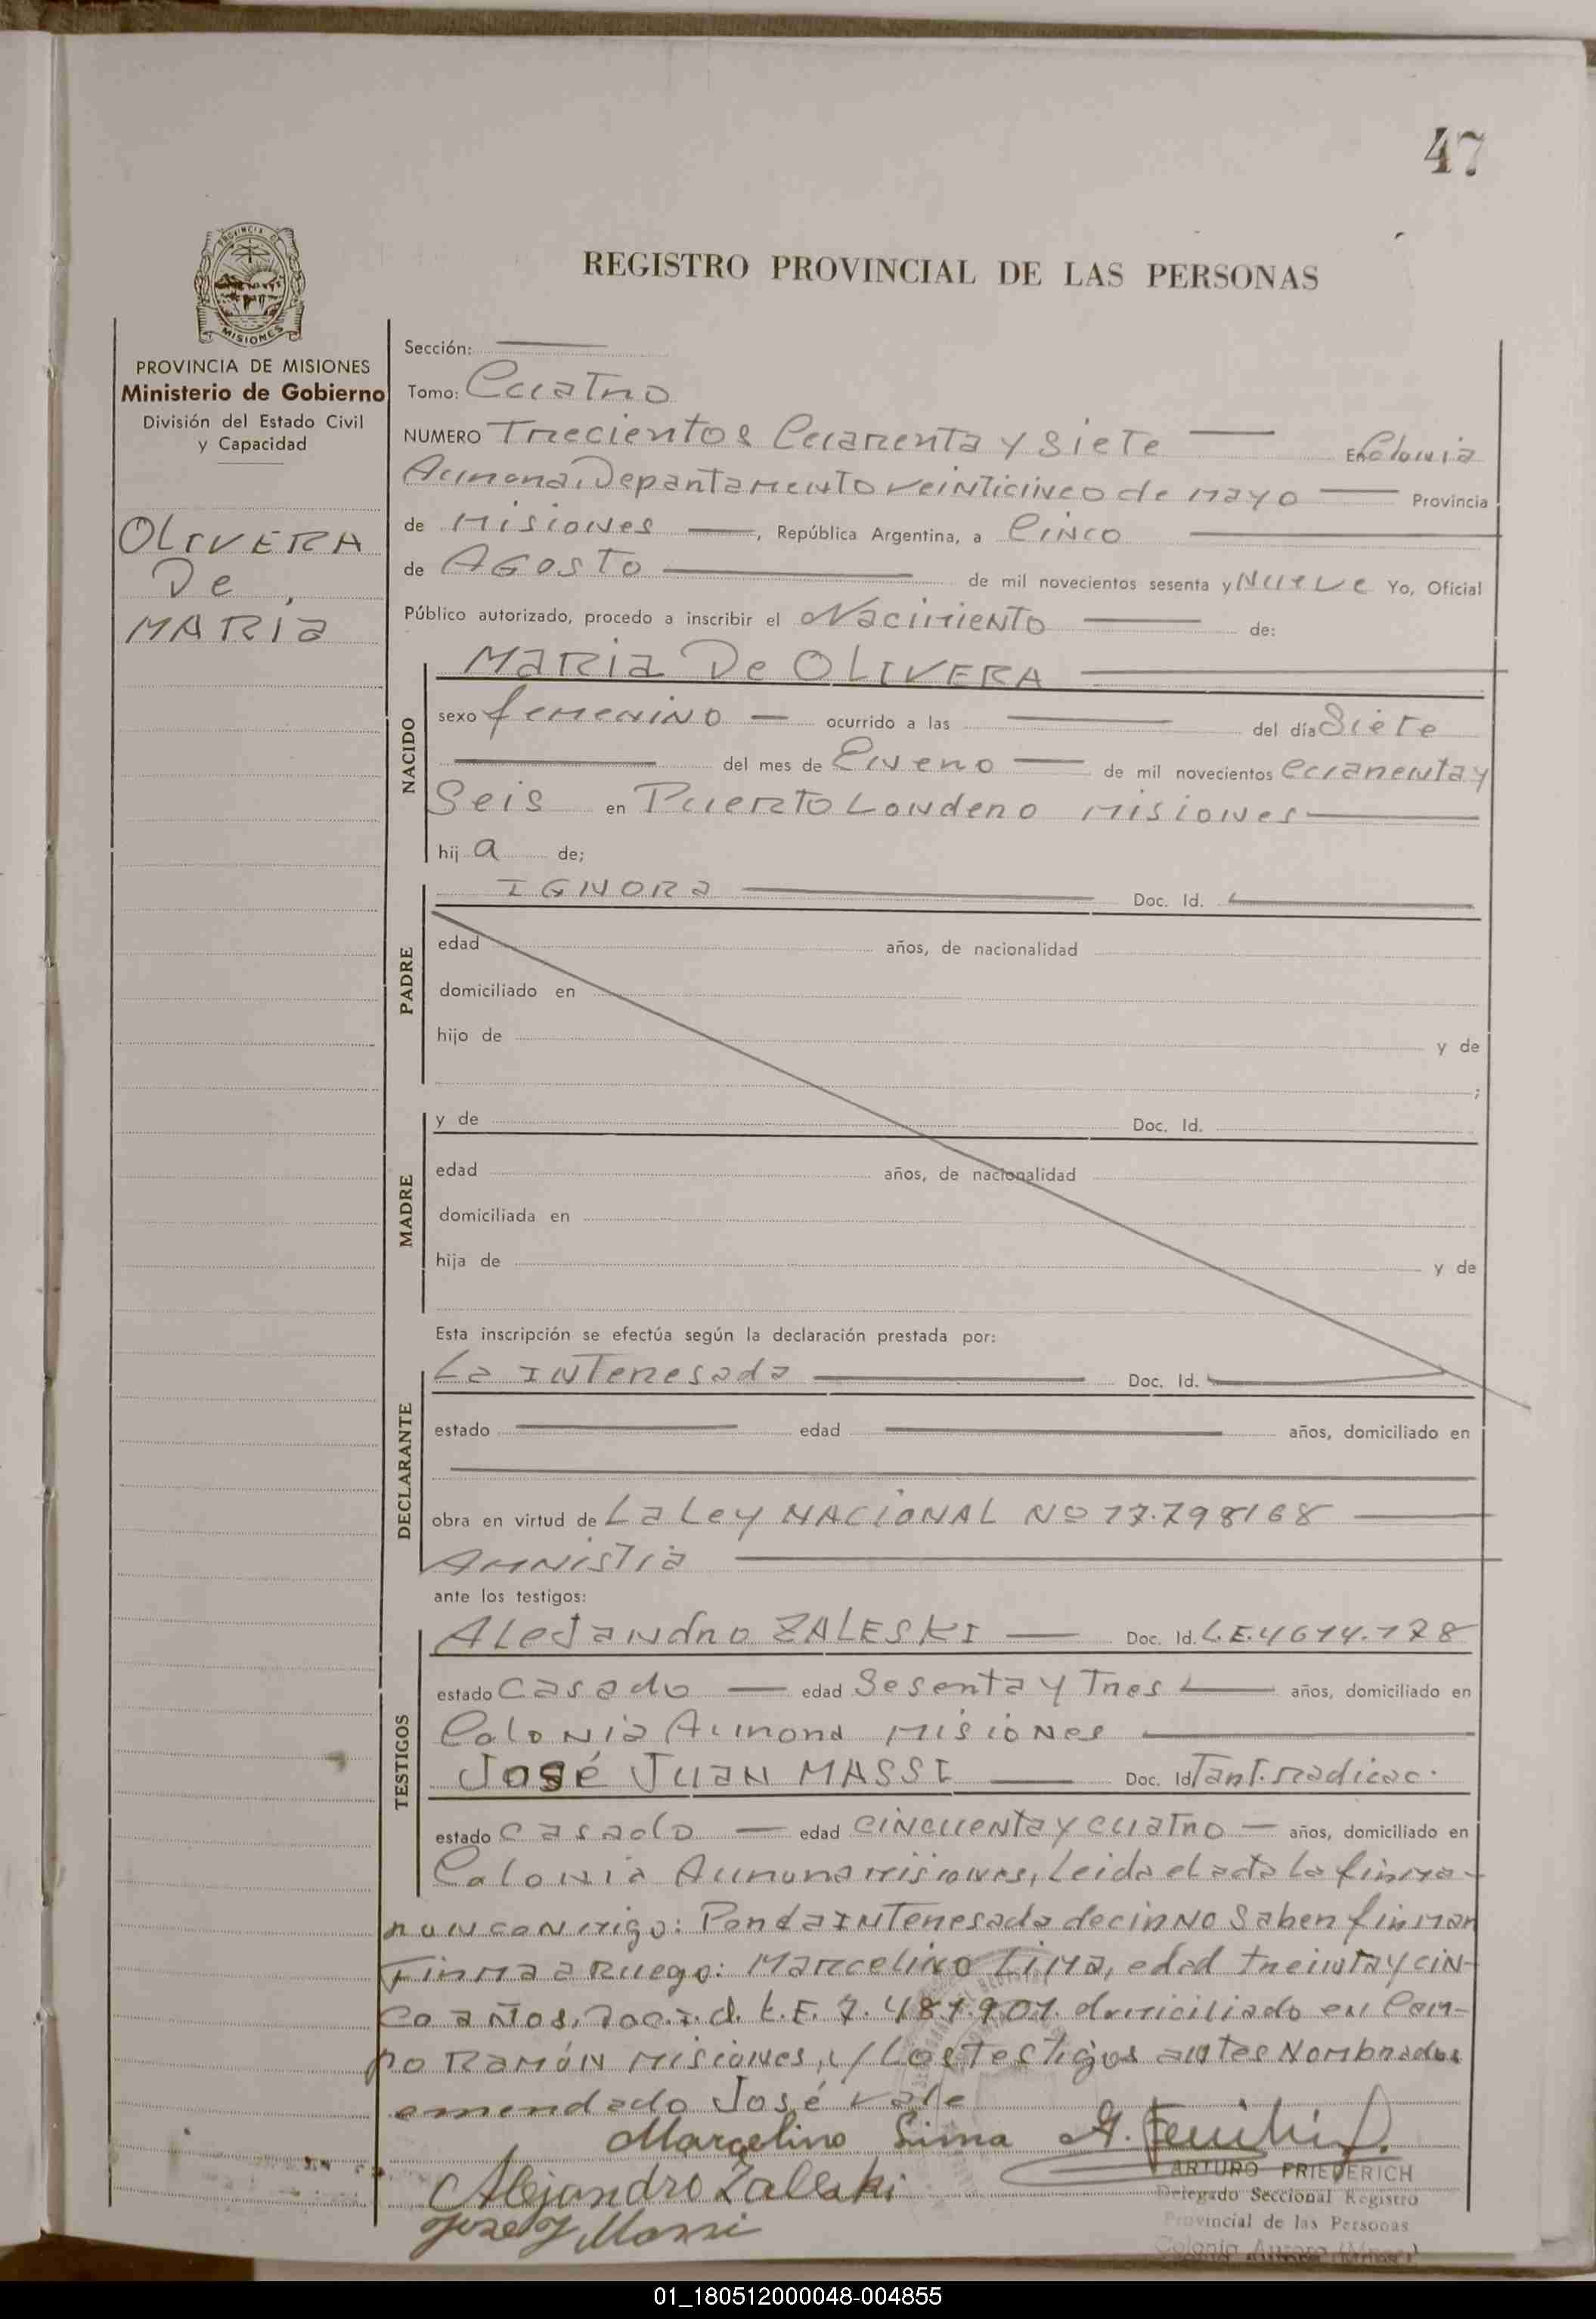 47
PROVINCIA DE
MISIONES
REGISTRO PROVINCIAL DE LAS PERSONAS
PROVINCIA DE MISIONES
Ministerio de Gobierno
División del Estado Civil
y Capacidad
OLIVERA
De,
MARIA
Sección:
Tomo: Cuatro
NUMERO Trecientos Cuarenta y Siete En Colonia
Aurora, Departamento veinticinco de mayo Provincia
de Misiones, República Argentina, a Cinco
de AGOSTO de mil novecientos sesenta y Nueve Yo, Oficial
Público autorizado, procedo a inscribir el Nacimiento de:
NACIDO
MARIA De OLIVERA
sexo femenino ocurrido a las del día Siete
del mes de Enero de mil novecientos cuarenta y
Seis en Puerto Londero Misiones
hija de;
PADRE
IGNORA Doc. Id.
edad años, de nacionalidad
domiciliado en
hijo de y de
;
MADRE
y de Doc. Id.
edad años, de nacionalidad
domiciliada en
hija de y de
Esta inscripción se efectúa según la declaración prestada por:
DECLARANTE
La Interesada Doc. Id.
estado edad años, domiciliado en
obra en virtud de La Ley NACIONAL Nº 17.798/68
Amnistia
ante los testigos:
TESTIGOS
Alejandro ZALESKI Doc. Id. L.E. 4614.178
estado Casado edad Sesenta y Tres años, domiciliado en
Colonia Aurora Misiones
José Juan MASSI Doc. Id Tarj. radicac.
estado casado edad cincuenta y cuatro años, domiciliado en
Colonia Aurora misiones, Leida el acta la firma-
ron conmigo: Por la Interesada decir No Saber firmar
Firma a Ruego: Marcelino Lima, edad treinta y cin-
co años, Doc. I. d. L.E. 7.481.901. domiciliado en Cam-
po Ramón misiones, y/ Los testigos antes Nombrados
emendado José vale
Marcelino Lima
Alejandro Zaleski
ARTURO FRIEDERICH
Delegado Seccional Registro
Provincial de las Personas
Colonia Aurora (Mnes.)
01_180512000048-004855